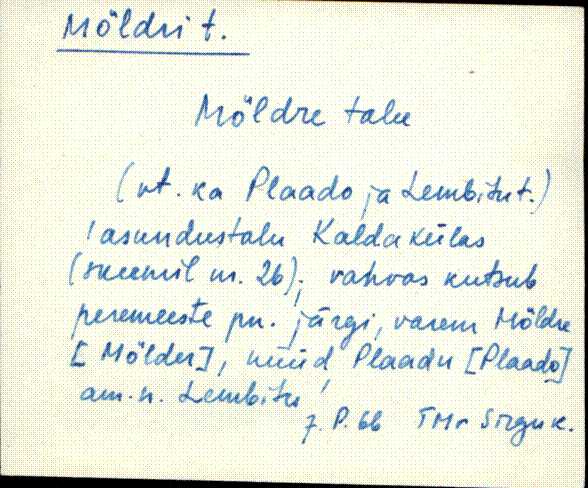 Möldri t.
Möldre talu
(vt. ka Plaado ja Lembitu t.)
! asundustalu Kalda külas
(skeemil nr. 26); rahvas kutsub
peremeeste pn. järgi, varem Möldre
[Mölder], nüüd Plaadu [Plaado]
am. n. Lembitu
7. P. 66 TMr Sirguk.